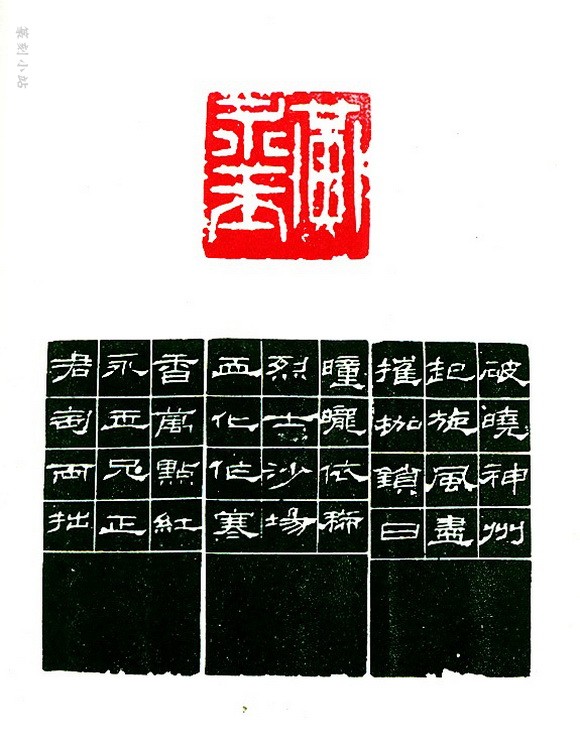 篆刻小站
黃永玉
破曉神州
起旋風盡
摧枷鎖日
曈曨依稀
烈士沙場
血化作寒
香萬點紅
永玉兄正
君匋兩拙